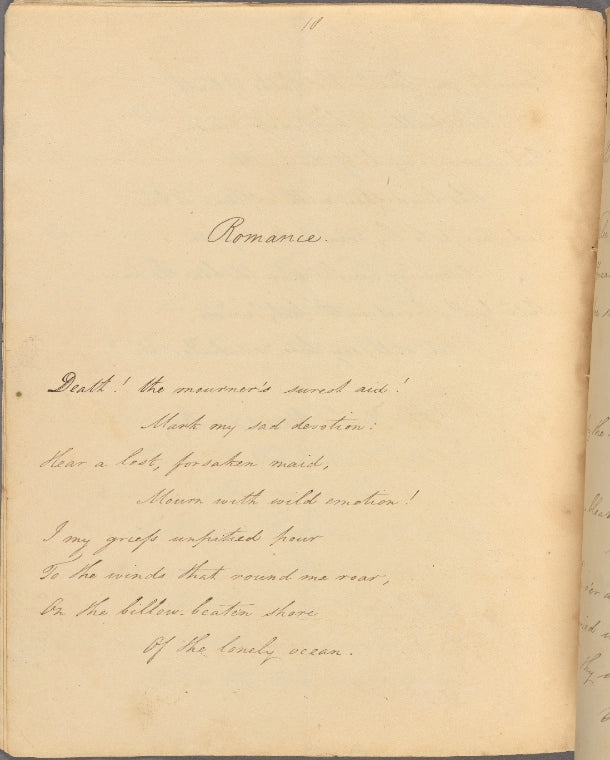 18
Romance.
Death! the mourner's surest aid!
Mark my sad devotion:
Hear a lost, forsaken maid,
Mourn with wild emotion!
I my griefs unpitied pour
To the winds that round me roar,
On the billow-beaten shore
Of the lonely ocean.